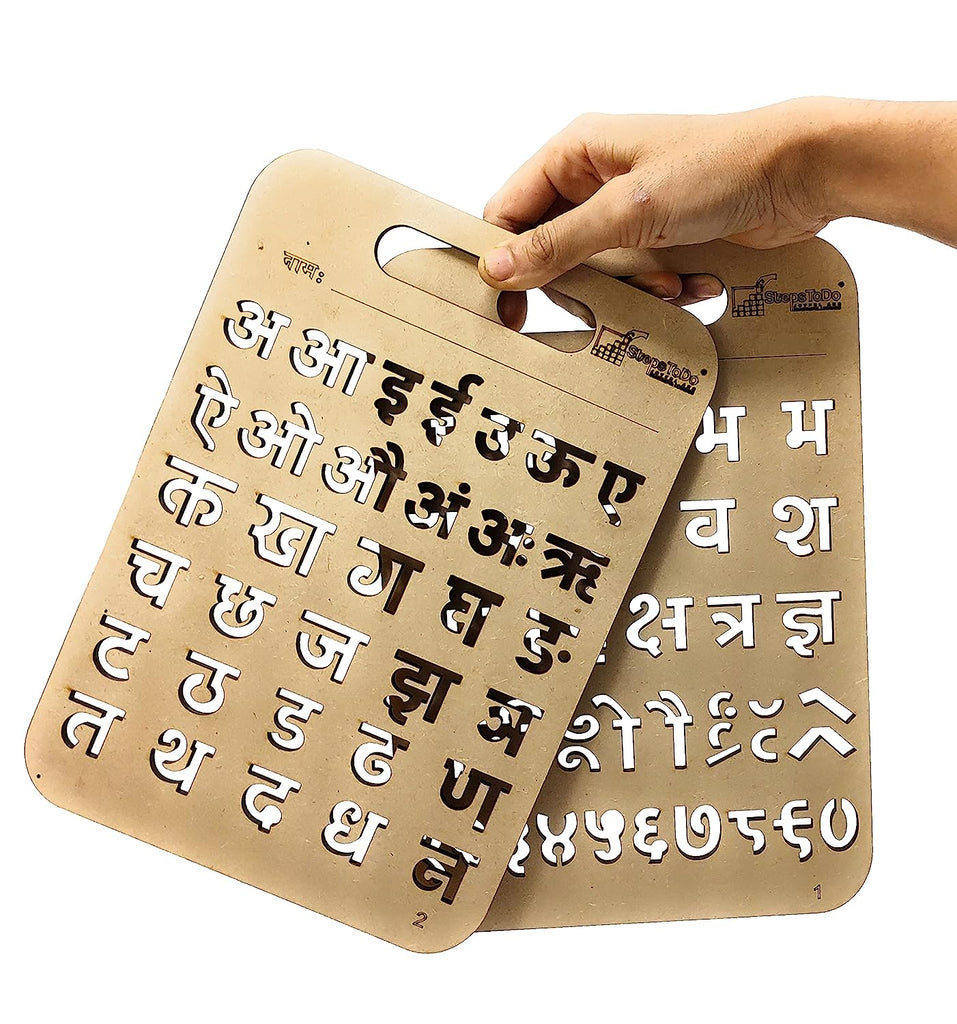 नाम:
StepsToDo
अ आ इ ई उ ऊ ए
ऐ ओ औ अं अः ऋ
क ख ग घ ङ
च छ ज झ ञ
ट ठ ड ढ ण
त थ द ध न
2
StepsToDo
भ म
व श
क्ष त्र ज्ञ
ू ो ौ
४ ५ ६ ७ ८ ९ ०
1